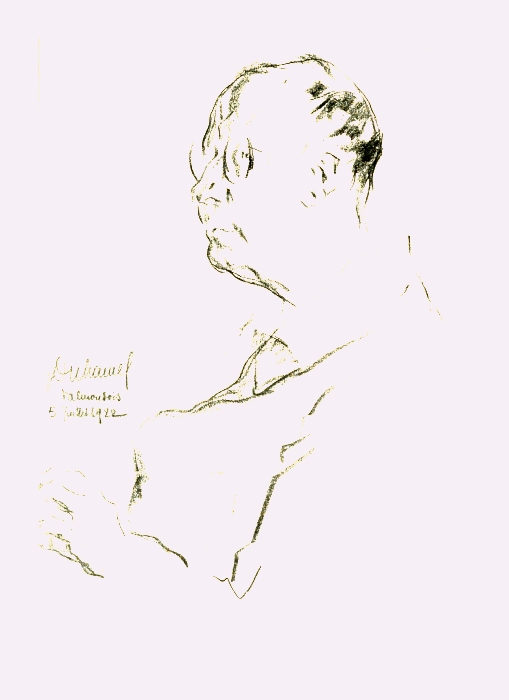 Duhamel
Valmondois
5 juillet 1922